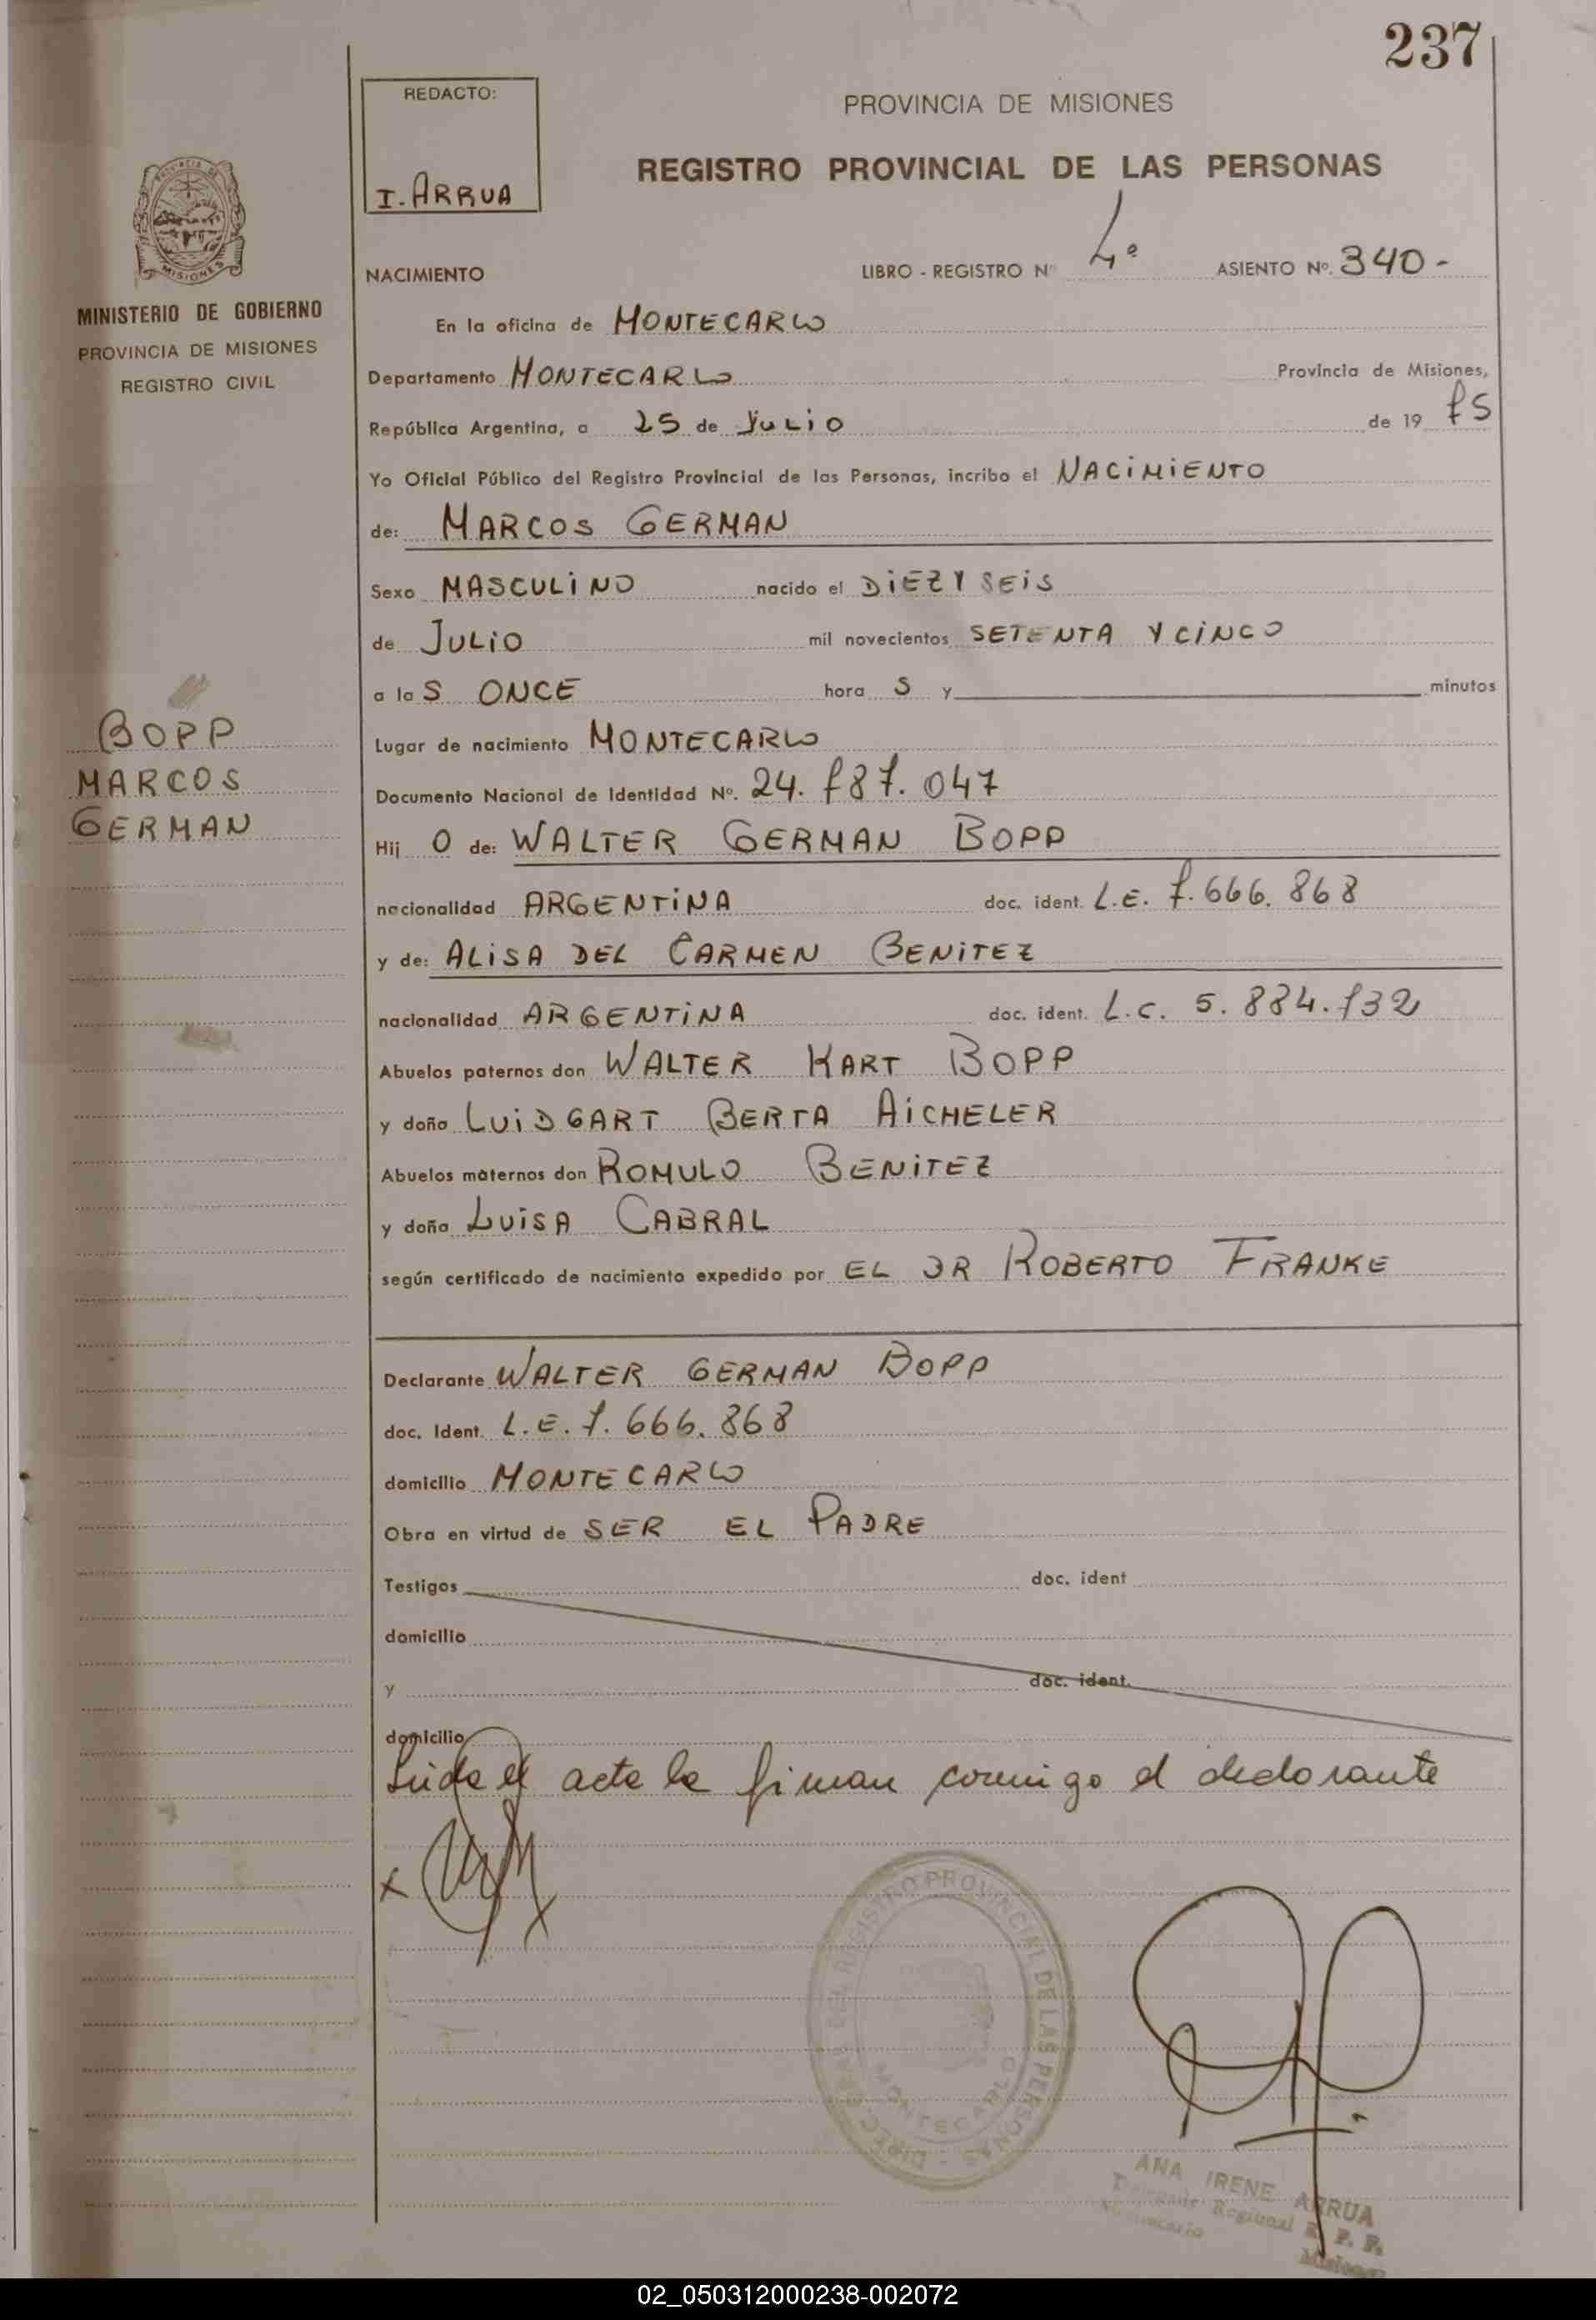 237
REDACTO:
I. ARRUA
PROVINCIA DE MISIONES
REGISTRO PROVINCIAL DE LAS PERSONAS
MISIONES
MINISTERIO DE GOBIERNO
PROVINCIA DE MISIONES
REGISTRO CIVIL
NACIMIENTO LIBRO - REGISTRO Nº 4º ASIENTO Nº. 340-
En la oficina de MONTECARLO
Departamento MONTECARLO Provincia de Misiones,
República Argentina, a 25 de JULIO de 19 75
Yo Oficial Público del Registro Provincial de las Personas, incribo el NACIMIENTO
de: MARCOS GERMAN
Sexo MASCULINO nacido el DIEZ Y SEIS
de JULIO mil novecientos SETENTA Y CINCO
a la S ONCE hora S y minutos
BOPP
MARCOS
GERMAN
Lugar de nacimiento MONTECARLO
Documento Nacional de Identidad Nº. 24.787.047
Hij O de: WALTER GERMAN BOPP
nacionalidad ARGENTINA doc. ident. L.E. 7.666.868
y de: ALISA DEL CARMEN BENITEZ
nacionalidad ARGENTINA doc. ident. L.C. 5.884.732
Abuelos paternos don WALTER KART BOPP
y doña LUIDGART BERTA AICHELER
Abuelos maternos don ROMULO BENITEZ
y doña LUISA CABRAL
según certificado de nacimiento expedido por EL DR ROBERTO FRANKE
Declarante WALTER GERMAN BOPP
doc. Ident. L.E. 7.666.868
domicilio MONTECARLO
Obra en virtud de SER EL PADRE
Testigos doc. ident
domicilio
y doc. ident.
domicilio
acta la firman conmigo el declarante
x
DEL REGISTRO PROVINCIAL DE LAS PERSONAS
MONTECARLO
ANA IRENE ARRUA
Delegada Regional R. P. P.
Montecarlo Misiones
02_050312000238-002072